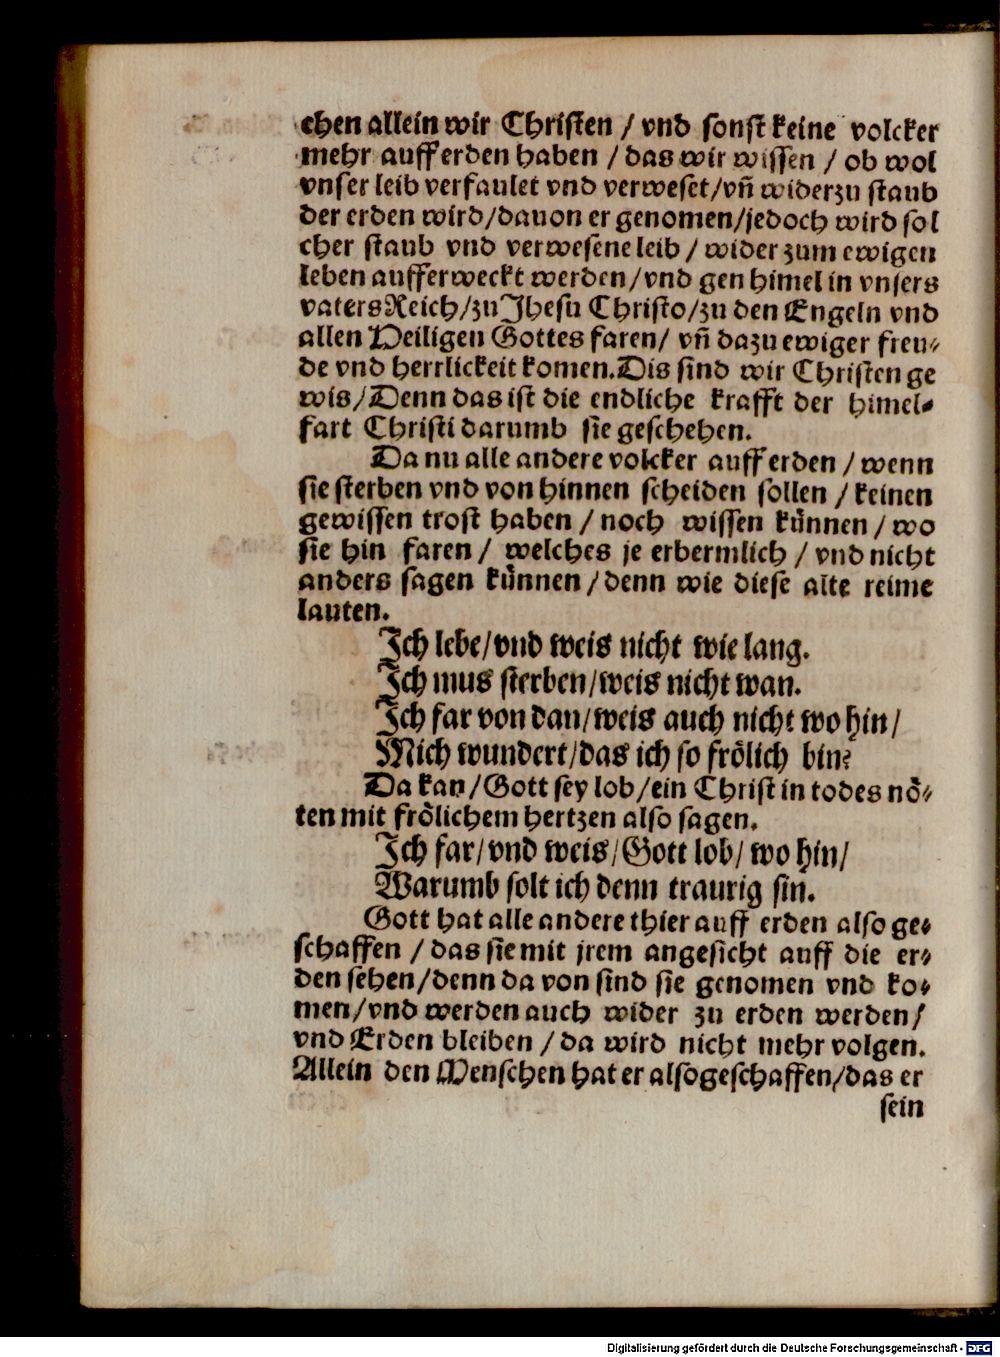 chen allein wir Christen / vnd sonst keine volcker
mehr auff erden haben / das wir wissen / ob wol
vnser leib verfaulet vnd verweset/vñ widerzu staub
der erden wird/dauon er genomen/jedoch wird sol
cher staub vnd verwesene leib / wider zum ewigen
leben aufferweckt werden/vnd gen himel in vnsers
vaters Reich/zu Jhesu Christo/zu den Engeln vnd
allen Heiligen Gottes faren/ vñ dazu ewiger freu⸗
de vnd herrlickeit komen. Dis sind wir Christen ge
wis/Denn das ist die endliche krafft der himel⸗
fart Christi darumb sie geschehen.
Da nu alle andere volcker auff erden / wenn
sie sterben vnd von hinnen scheiden sollen / keinen
gewissen trost haben / noch wissen kuͤnnen / wo
sie hin faren / welches je erbermlich / vnd nicht
anders sagen kuͤnnen / denn wie diese alte reime
lauten.
Ich lebe/vnd weis nicht wie lang.
Ich mus sterben/weis nicht wan.
Ich far von dan/weis auch nicht wo hin/
Mich wundert/das ich so froͤlich bin?
Da kan/Gott sey lob/ein Christ in todes noͤ⸗
ten mit froͤlichem hertzen also sagen.
Ich far/vnd weis/Gott lob/ wo hin/
Warumb solt ich denn traurig sin.
Gott hat alle andere thier auff erden also ge⸗
schaffen / das sie mit jrem angesicht auff die er⸗
den sehen/denn da von sind sie genomen vnd ko⸗
men/vnd werden auch wider zu erden werden/
vnd Erden bleiben / da wird nicht mehr volgen.
Allein den Menschen hat er also geschaffen/das er
sein
Digitalisierung gefördert durch die Deutsche Forschungsgemeinschaft - DFG